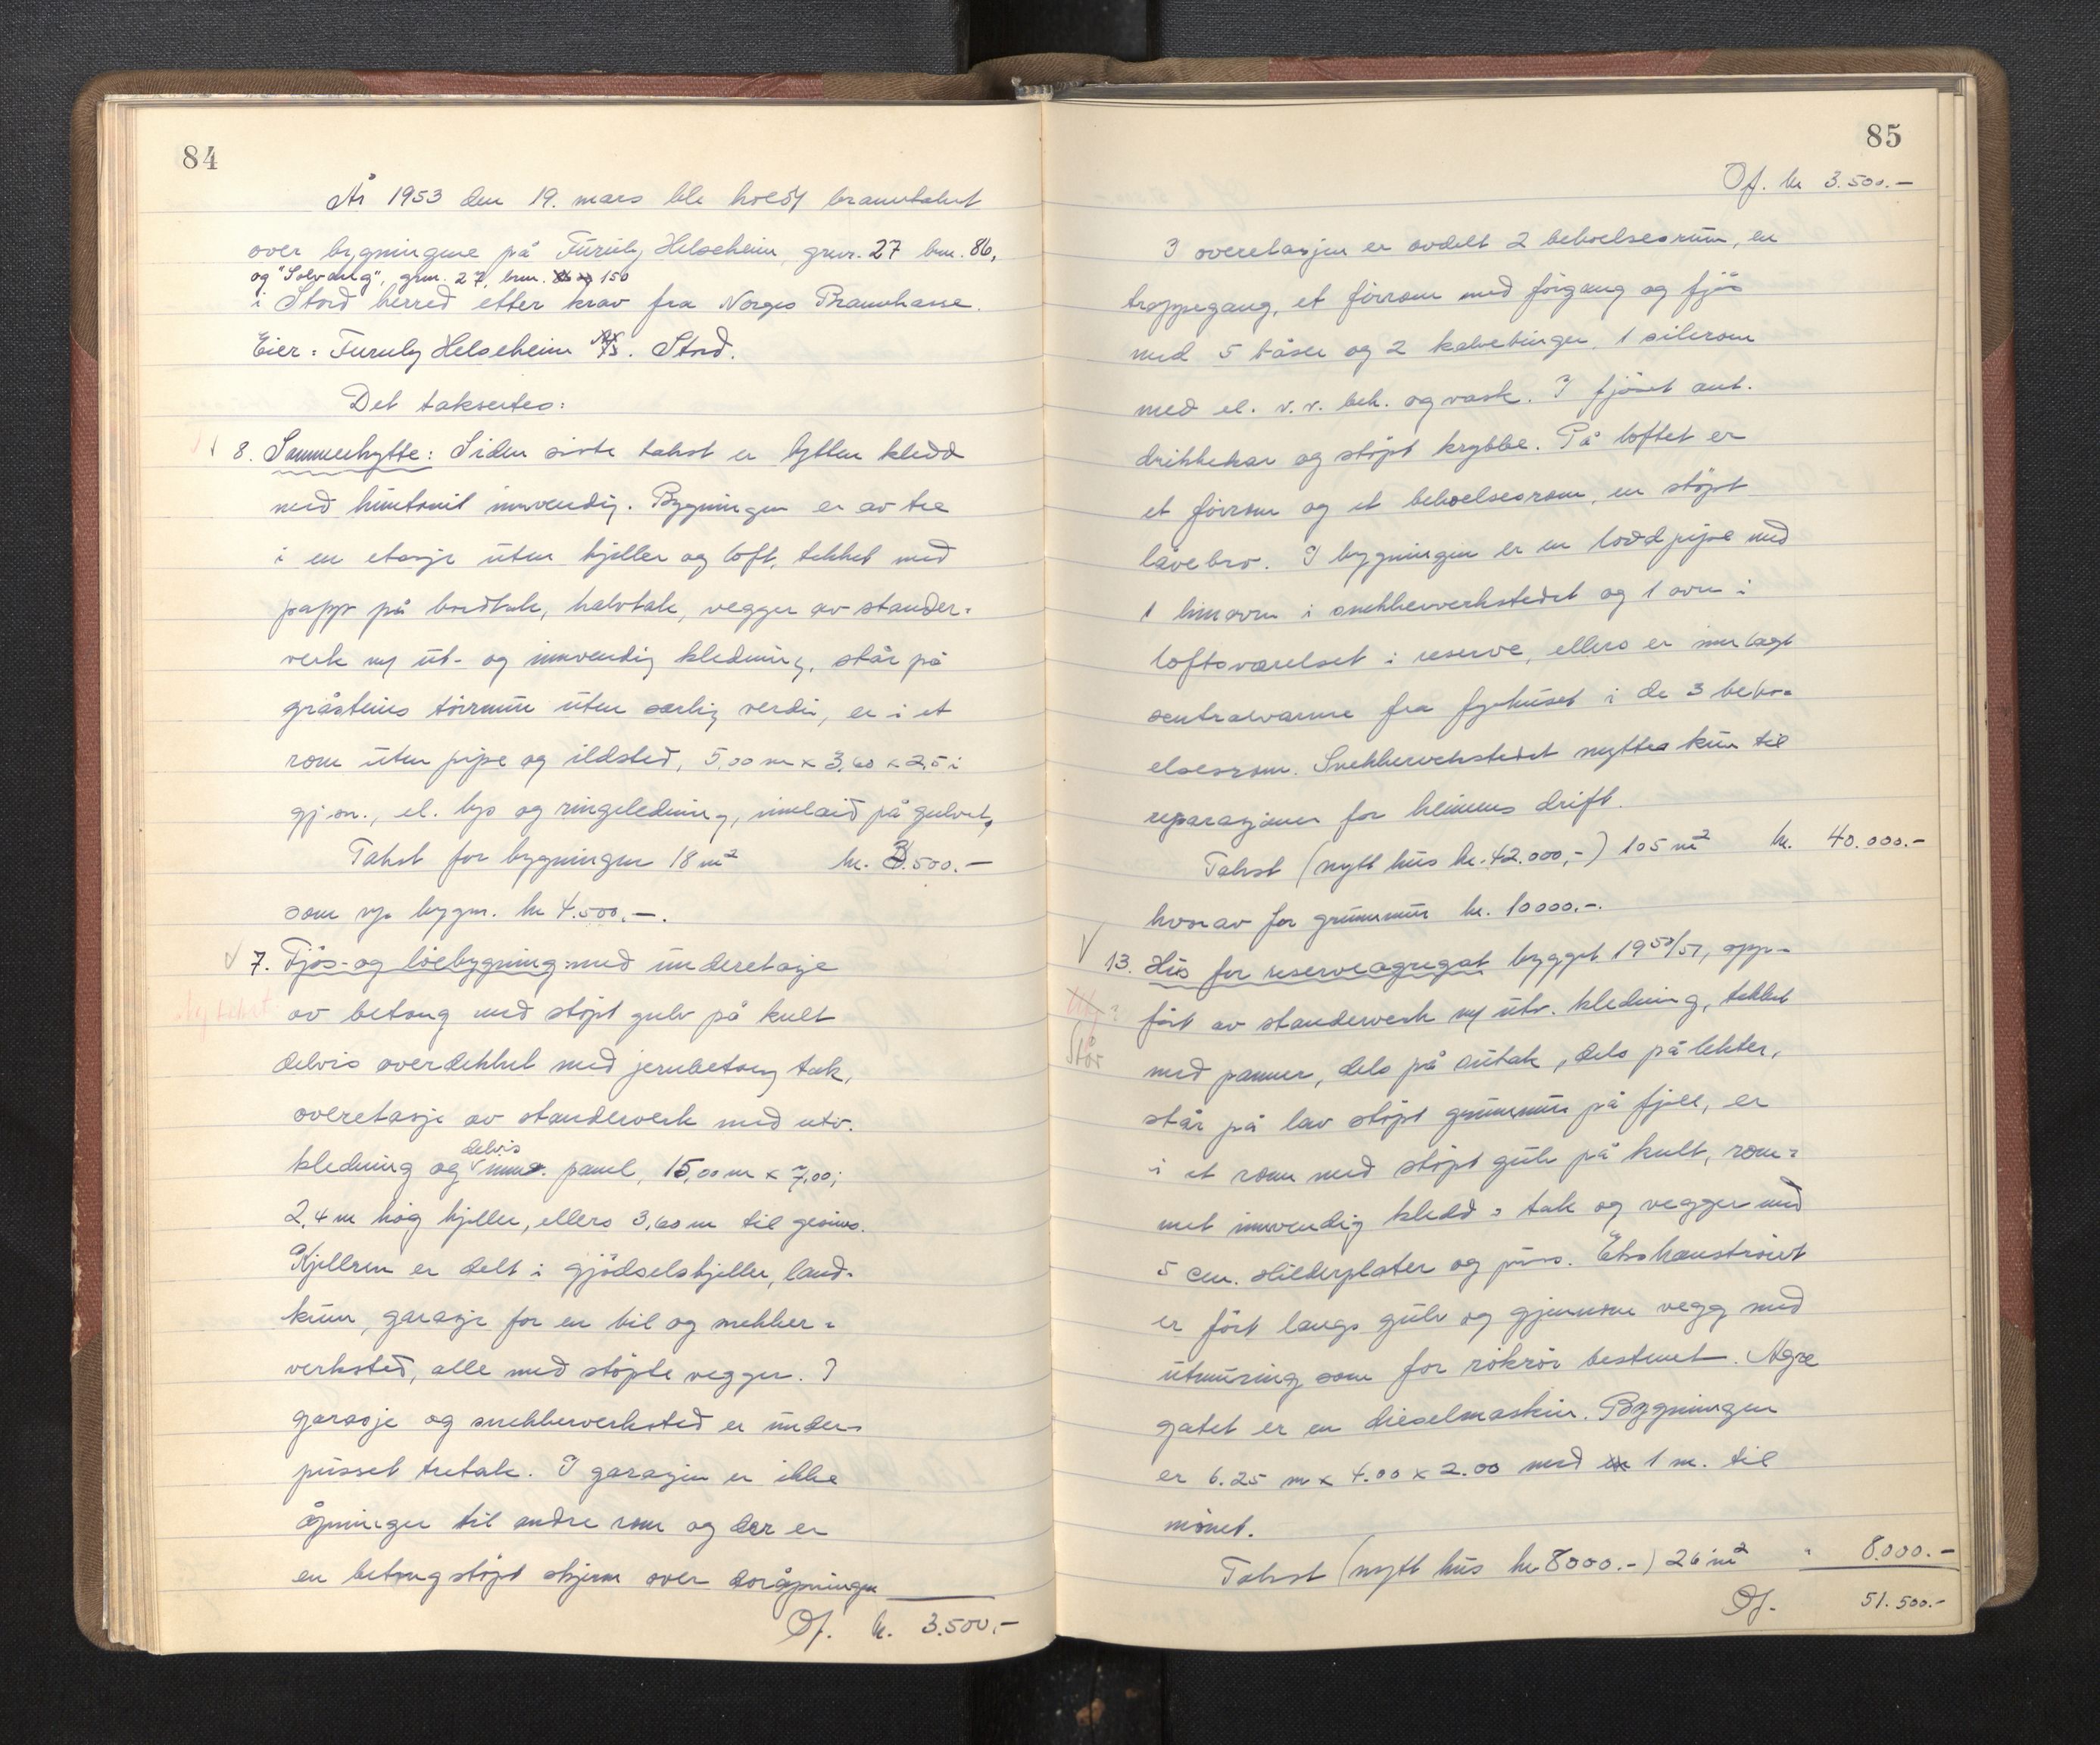 84
År 1953 den 19. mars ble holdt branntakst
over bygningene på Furuly Helseheim, gnr. 27 bnr. 86,
og "Solvang", gnr. 27, bnr. 150
i Stord herred etter krav fra Norges Brannkasse.
Eier: Furuly Helseheim A/S. Stord.
Det takseertes:
8. Sommerhytte: Siden siste takst er hytten kledd
med huntonit innvendig. Bygningen er av tre
i en etasje uten kjeller og loft, tekket med
papp på bordtak, halvtak, vegger av stender-
verk m/ ut- og innvendig kledning, står på
gråsteins törrmur uten særlig verdi, er i et
rom uten pipe og ildsted, 5,00 m x 3,60 x 2,5 i
gj.sn., el. lys og ringeledning, innlaid på gulvet.
Takst for bygningen 18 m² kr. 3.500.-
som ny bygn. kr 4.500.-.
7. Fjös- og löebygning: med underetasje
Ny takst
av betong med stöpt gulv på kult
delvis overdekket med jernbetong tak,
overetasje av standerverk med utv.
delvis
kledning og innv. panel, 15,00 m x 7,00;
2,4 m høg kjeller, ellers 3,60 m til gesims.
Kjelleren er delt i gjödselskjeller, land-
kum, garasje for en bil og snekker-
verksted, alle med stöpte vegger. I
garasje og snekkerverksted er under-
pusset tretak. I garasjen er ikke
åpninger til andre rom og der er
en betongstöpt skjerm over doråpningen
Of. kr. 3.500.-
85
Of. kr 3.500.-
I overetasjen er avdelt 2 beboelsesrum, en
trappegang, et fôrrom med fôrgang og fjös
med 5 båser og 2 kalvebinger, 1 silerom
med el. v.v. beh. og vask. I fjöset aut.
drikkekar og stöpt krybbe. På loftet er
et fôrrom og et beboelsesrom, en stöpt
låvebro. I bygningen er en lodd pipe med
1 limovn i snekkerverkstedet og 1 ovn i
loftsværelset i reserve, ellers er innlagt
sentralvarme fra fyrhuset i de 3 bebo-
elsesrom. Snekkerverkstedet nyttes kun til
reparasjoner for heimens drift.
Takst (nytt hus kr. 42.000,-) 105 m² kr. 40.000.-
hvorav for grunnmur kr. 10000.-.
13. Hus for reserveagregat bygget 1950/51, opp-
fört av standerverk m/ utv. kledning, tekket
Stör
med panner, dels på sutak, dels på lekter,
står på lav stöpt grunnmur på fjell, er
i et rom med stöpt gulv på kult, rom-
met innvendig kledd i tak og vegger med
5 cm. sliederplater og puss. Ekshauströret
er fört langs gulv og gjennom vegg med
utmuring som for rökrör bestemt. Agre
gatet er en dieselmaskin. Bygningen
er 6.25 m x 4.00 x 2.00 med 1 m. til
mönet.
Takst (nytt hus kr 8000.-) 26 m² " 8.000.-
Of. 51.500.-